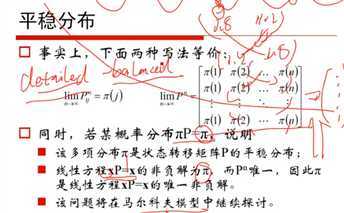 平稳分布
事实上，下面两种写法等价：
detailed balanced
lim P^n_ij = π(j)    lim P^n = [π(1) π(2) … π(n)
n→∞    n→∞    π(1) π(2) … π(n)
⋮ ⋮ ⋱ ⋮
π(1) π(2) … π(n)]
同时，若某概率分布πP=π，说明
该多项分布π是状态转移矩阵P的平稳分布；
线性方程xP=x的非负解为π，而Pⁿ唯一，因此π
是线性方程xP=x的唯一非负解。
该问题将在马尔科夫模型中继续探讨。